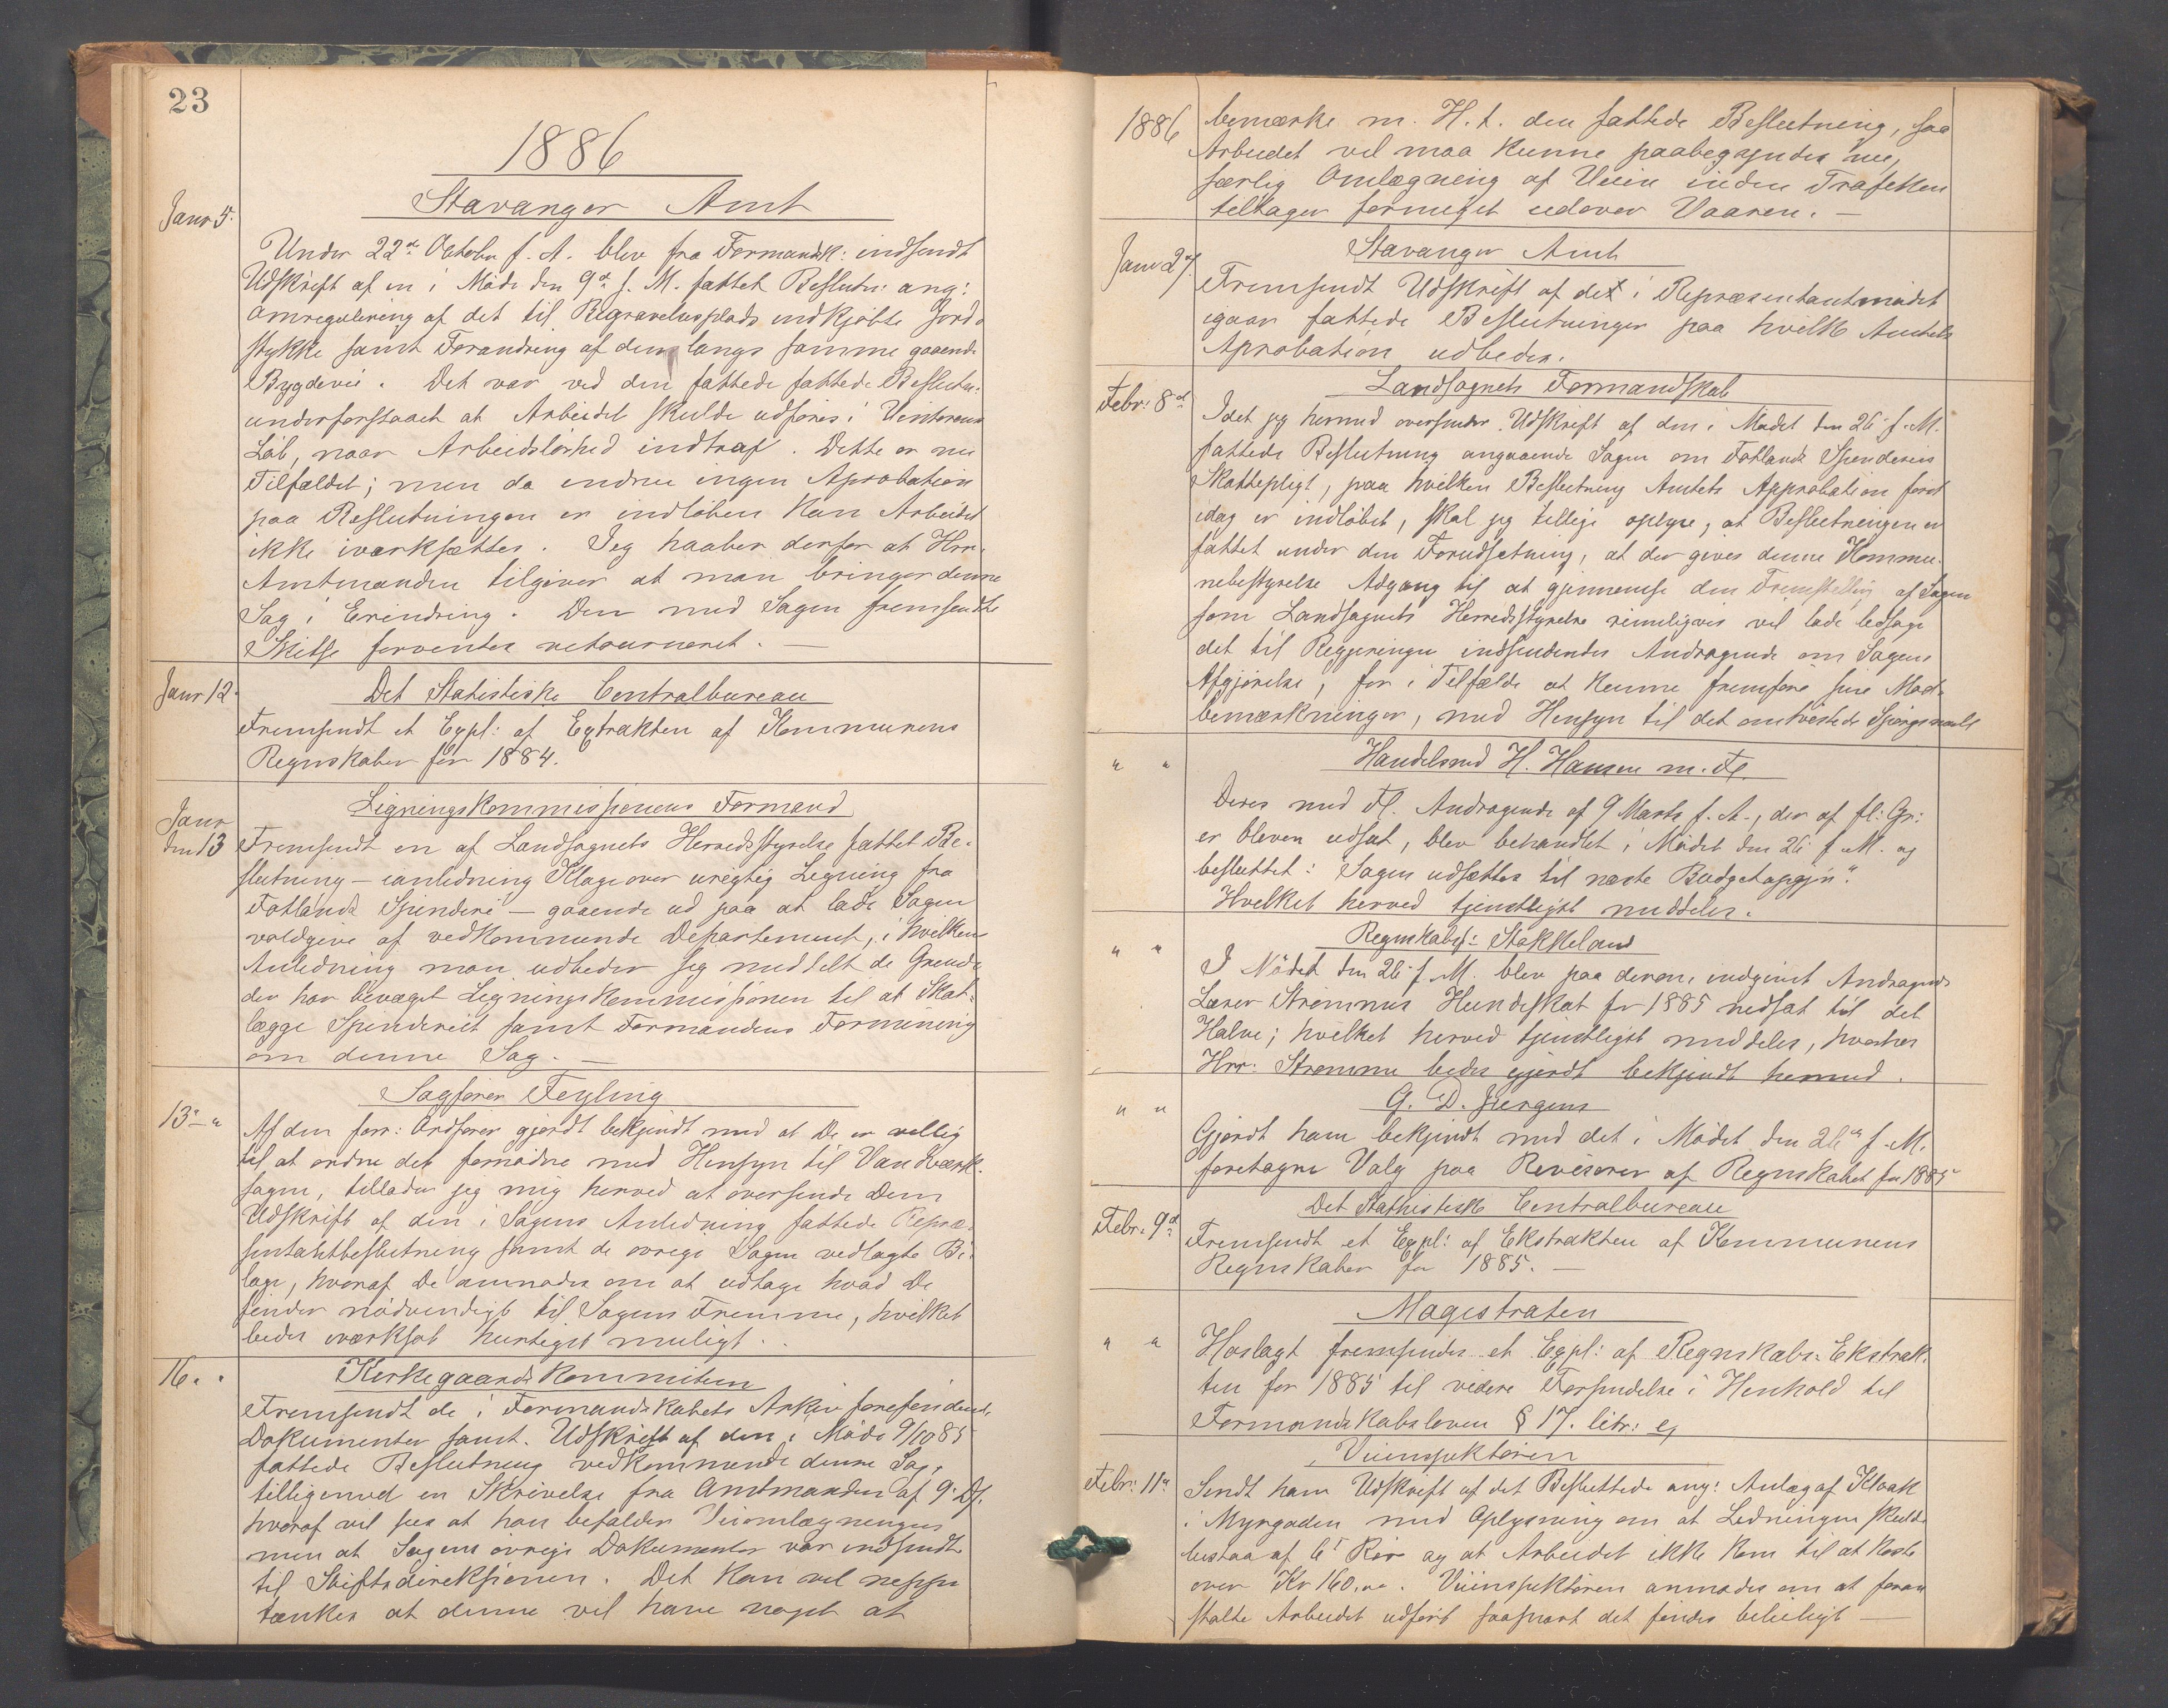 23
1886
Stavanger Amt
Janr 5.
Under 22de Octobr f. A. blev fra Formandsk: indsendt
Udskrift af en i Møde den 9de s. M. fattet Beslutn: ang:
Omregulering af det til Begravelsesplads indkjøbte Jord-
stykke samt Forandring af den langs samme gaaende
Bygdevei. Det var ved den fattede fattede Beslutn:
underforstaaet at Arbeidet skulde udføres i Vinterens
Løb, naar Arbeidsløshed indtraf. Dette er nu
Tilfældet; men da endnu ingen Aprobation
paa Beslutningen er indløben kan Arbeidet
ikke iværksættes. Jeg haaber derfor at Hrr.
Amtmanden tilgiver at man bringer denne
Sag i Erindring. Den med Sagen fremsendte
Skitse forventes retourneret. —
Janr 12.
Det Statistiske Centralbureau
Fremsendt et Expl: af Extrakten af Kommunens
Regnskaber for 1884.
Janr
den 13
Ligningskommissionens Formand
Fremsendt en af Landsognets Herredsstyrelse fattet Be-
slutning — ianledning Klage over uregtig Ligning fra
Fotlands Spinderi — gaaende ud paa at lade Sagen
voldgive af vedkommende Departement, i hvilken
Anledning man udbeder sig meddelt de Grunde
der har bevæget Ligningskommissionen til at Skat-
lægge Spinderiet samt Formandens Formening
om denne Sag. —
Sagfører Feyling
13. — "
Af den forr: Ordfører gjørdt bekjendt med at De er villig
til at ordne det fornødne med Hensyn til Vandværk-
sagen, tillader jeg mig herved at oversende Dem
Udskrift af den i Sagens Anledning fattede Repræ-
sentantbeslutning samt de øvrige Sagen vedlagte Bi-
lage, hvoraf De anmodes om at udtage hvad De
finder nødvendigt til Sagens Fremme, hvilket
bedes iværksat hurtigst muligt.
16. "
Kirkegaardskommiteen
Fremsendt de i Formandskabets Arkiv forefindende
Dokumenter samt. Udskrift af den i Møde 9/10 85
fattede Beslutning vedkommende denne Sag,
tilligemed en Skrivelse fra Amtmanden af 9. ds.
hvoraf vil sees at han befalder Veiomlægningen
men at Sagens øvrige Dokumenter var indsendt
til Stiftsdireksionen. Det kan vel neppe
tænkes at denne vil have noget at
1886
bemærke m. H. t. den fattede Beslutning, saa
Arbeidet vel maa kunne paabegyndes nu,
særlig Omlægning af Veien inden Trafikken
tiltager formeget udover Vaaren. —
Janr 27.
Stavanger Amt
Fremsendt Udskrift af det i Repræsentantmødet
igaar fattede Beslutninger paa hvilke Amtets
Aprobation udbedes.
Febr: 8de
Landsognets Formandskab
Idet jeg hermed oversender Udskrift af den i Mødet den 26. f. M.
fattede Beslutning angaaende Sagen om Fotlands Spinderis
Skattepligt, paa hvilken Beslutning Amtets Approbation først
idag er indløbet, skal jeg tillige oplyse, at Beslutningen er
fattet under den Forudsetning, at der gives denne Kommu-
nebestyrelse Adgang til at gjennemse den Fremstilling af Sagen
som Landsognets Herredsstyrelse rimeligvis vil lade ledsage
det til Regjeringen indsendendes Andragende om Sagens
Afgjørelse, for i Tilfælde at kunne fremføre sine Mod-
bemærkninger, med Hensyn til det omtvistede Spørgsmaal
" "
Handelsmd H. Hansen m. Fl.
Deres med Fl. Andragende af 9 Marts f. A., der af fl: Gr:
er bleven udsat, blev behandlet i Mødet den 26 f. M. og
besluttet: "Sagen udsættes til næste Budgetopgjør".
Hvilket herved tjenstligst meddeles.
" "
Regnskabsf: Stokkeland
I Mødet den 26. f. M. blev paa derom indgivet Andragende
Lærer Strømmes Hundeskat for 1885 nedsat til det
Halve; hvilket herved tjenstligst meddeles, hvorhos
Hrr: Strømme bedes gjørdt bekjendt hermed.
" "
G. D. Jürgens
Gjørdt ham bekjendt med det i Mødet den 26de f. M.
foretagne Valg paa Revisorer af Regnskabet for 1885
Det Stathistiske Centralbureau
Febr. 9de
Fremsendt et Expl: af Ekstrakten af Kommunens
Regnskaber for 1885. —
Magistraten
" "
Hoslagt fremsendes et Expl: af Regnskabs-Ekstrak-
ten for 1885 til videre Forsendelse i Henhold til
Formandskabsloven § 17. litr: e,
Veiinspektøren
Febr: 11te
Sendt ham Udskrift af det Besluttede ang: Anlæg af Kloak
i Myrgaden med Oplysning om at Ledningen skulde
bestaa af 6" Rør og at Arbeidet ikke kom til at koste
over Kr 160,00. Veiinspektøren anmodes om at foran
stalte Arbeidet udført saasnart det findes beleiligt —